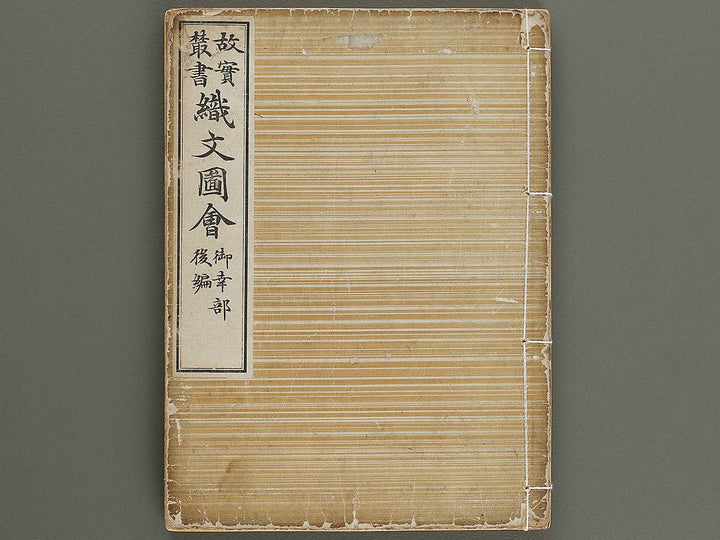 故實
叢書
織文圖會
御幸部
後編